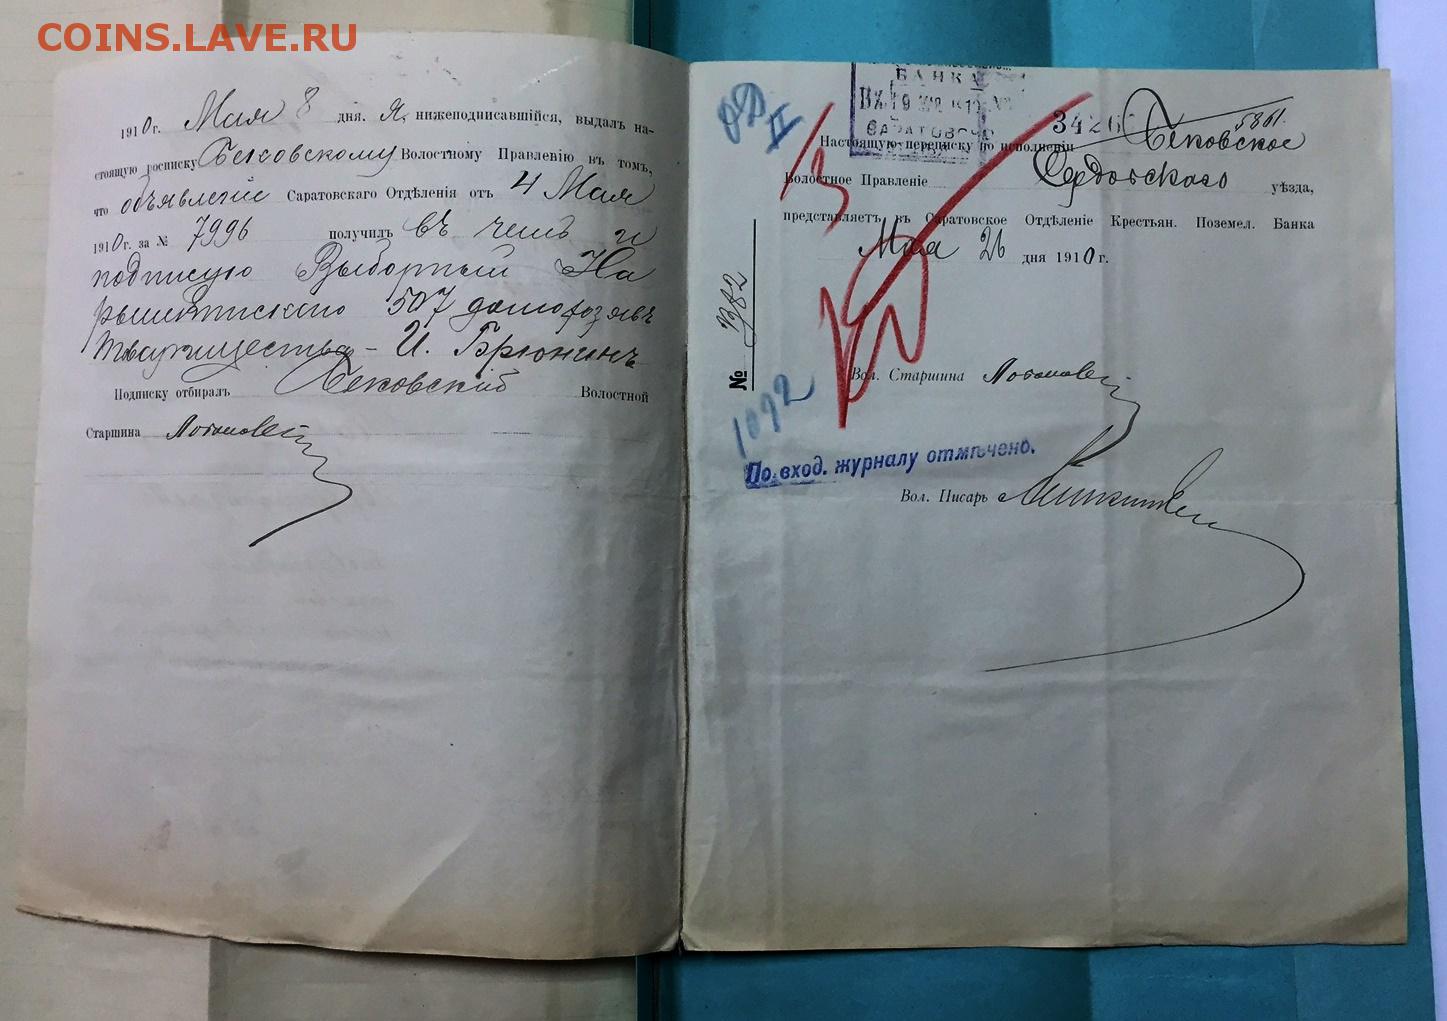 COINS.LAVE.RU
1910г. Мая 8 дня. Я, нижеподписавшійся, выдалъ на-
стоящую росписку Бековскому Волостному Правленію въ томъ,
что объявленіе Саратовскаго Отдѣленія отъ 4 Мая
1910г. за № 7996 получилъ въ чемъ и
подписуюсь Выборный На
рышкинскаго 507 домохозяевъ
товарищества - И. Брюнинъ
Подписку отбиралъ Бековскій Волостной
Старшина
БАНКА
САРАТОВСК
34266
5861.
II
Настоящую переписку по исполненіи Бековское
Волостное Правленіе Сердобскаго уѣзда,
представляетъ въ Саратовское Отдѣленіе Крестьян. Поземел. Банка
Мая 26 дня 1910г.
№ 1382
1092
Вол. Старшина
По вход. журналу отмѣчено.
Вол. Писарь